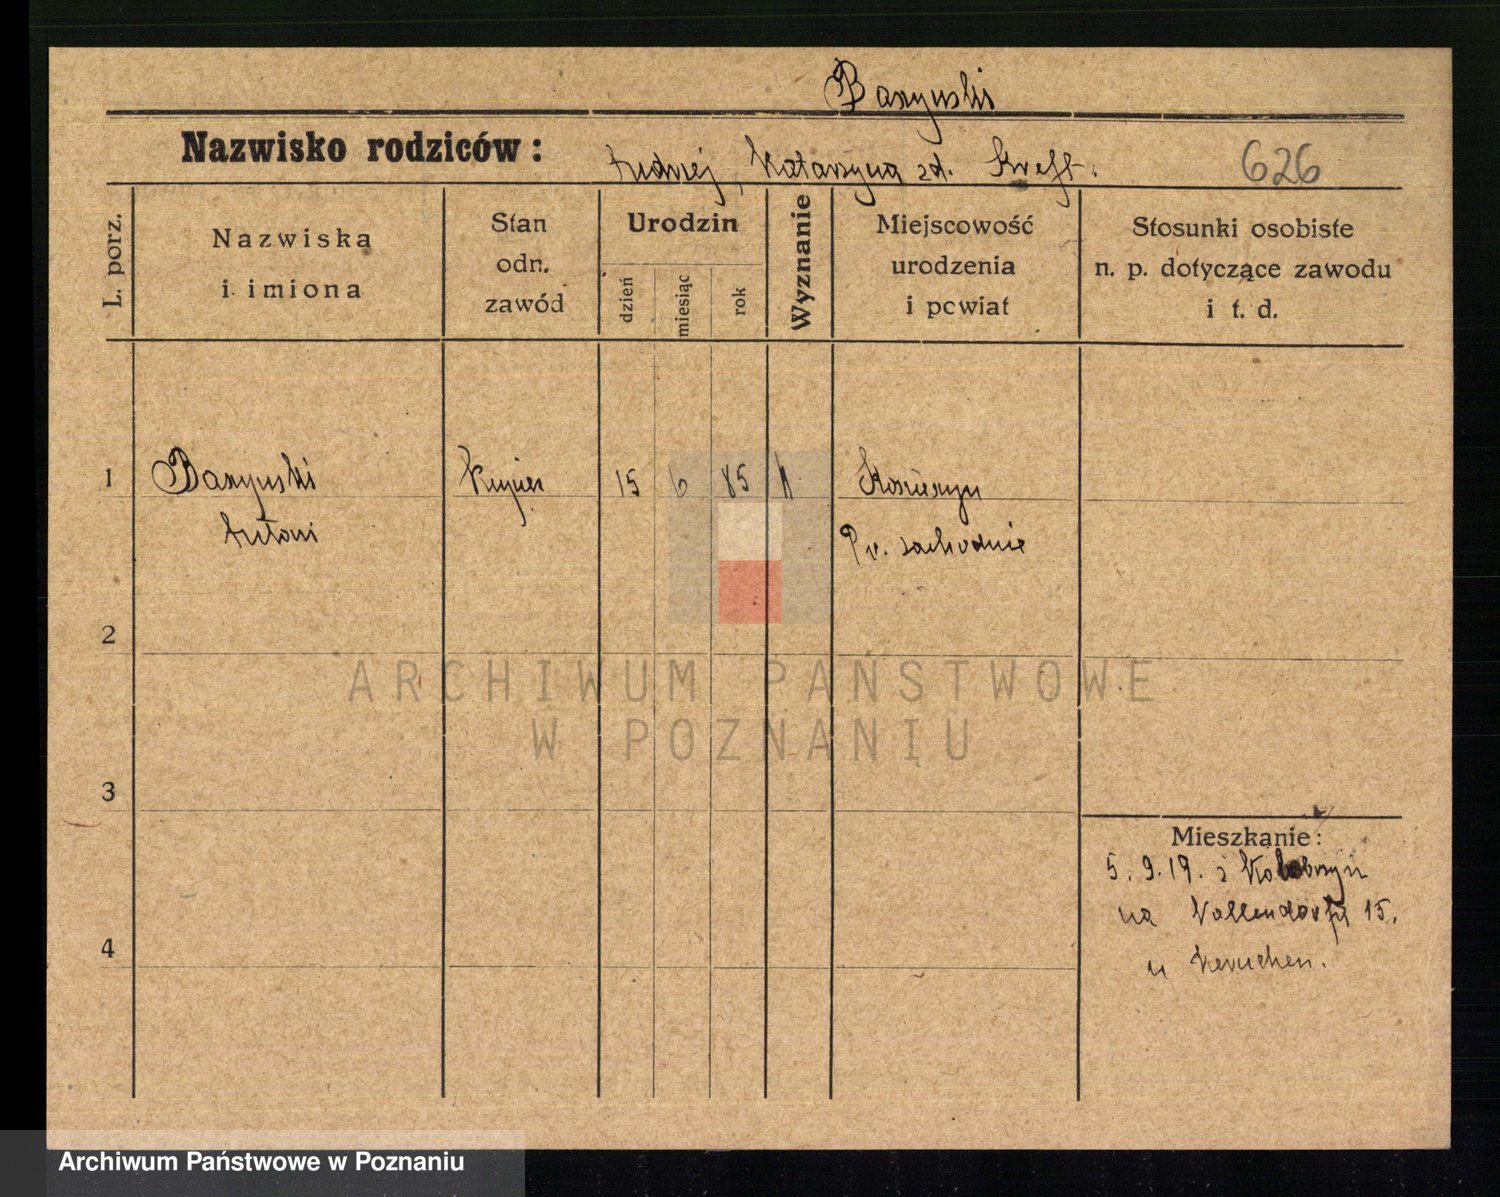 Nazwisko rodziców:
Andrzej, Katarzyna zd. Kreft.
626
L. porz.
Nazwiska
i imiona
Stan
odn.
zawód
Urodzin
dzień
miesiąc
rok
Wyznanie
Miejscowość
urodzenia
i powiat
Stosunki osobiste
n. p. dotyczące zawodu
i t. d.
1
Kupiec
15
6
85
Antoni
Pr. zachodnie
2
ARCHIWUM PAŃSTWOWE
W POZNANIU
3
Mieszkanie:
5. 9. 19. z
na 15.
4
u
Archiwum Państwowe w Poznaniu